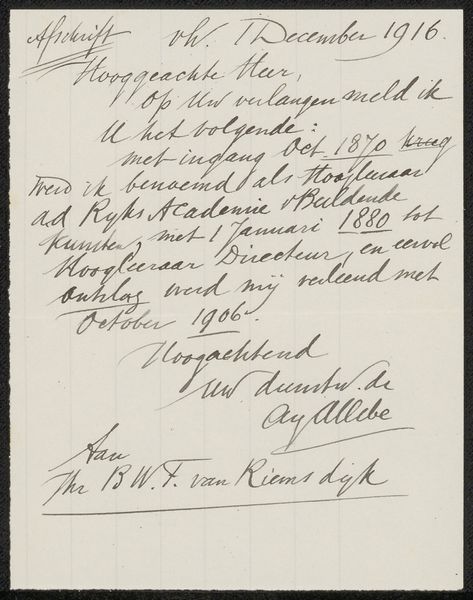 Afschrift
vW. 1 December 1916.
Hooggeachte Heer,
Op Uw verlangen meld ik
U het volgende:
met ingang Oct. 1870 kreeg
werd ik benoemd als Hoogleeraar
a.d Ryks Academie v Beeldende
Kunsten, met 1 Januari 1880 tot
Hoogleeraar Directeur, en eervol
ontslag werd mij verleend met
October 1906.
Hoogachtend
Uw dienstw. dr
Allebé
Aan
Jhr B. W. F. van Riemsdijk